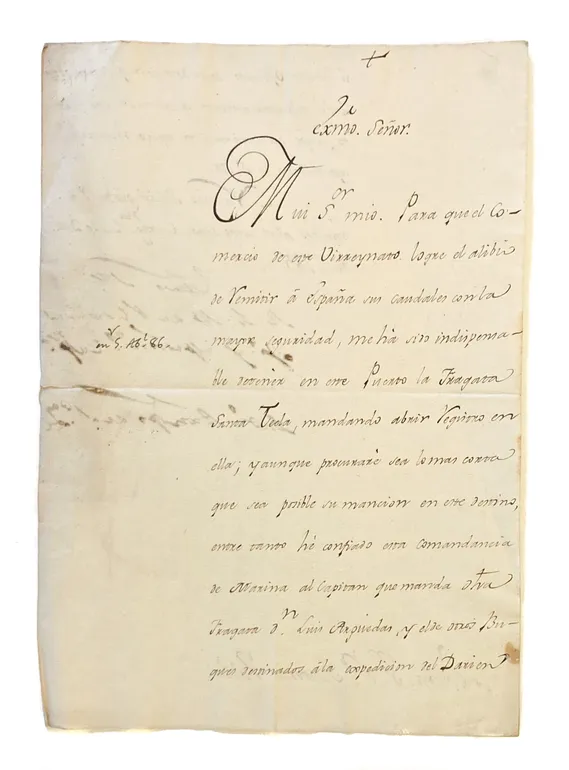 Exmo. Señor.
Mui S.or mio. Para que el Co-
mercio de este Virreynato logre el alibio
de Remitir â España sus caudales con la
mayor seguridad, me há sido indispensa-
ble detener en este Puerto la Fragata
Santa Tecla, mandando abrir Registro en
ella; y aunque procuraré sea lo mas corta
que sea posible su mancion en este destino,
entre tanto hé confiado esta Comandancia
de Marina al Capitan que manda dha
Fragata d.n Luis Arguedas, y el de otros Bu-
ques destinados âla expedicion del Darien
en 5. Ab.l 86.